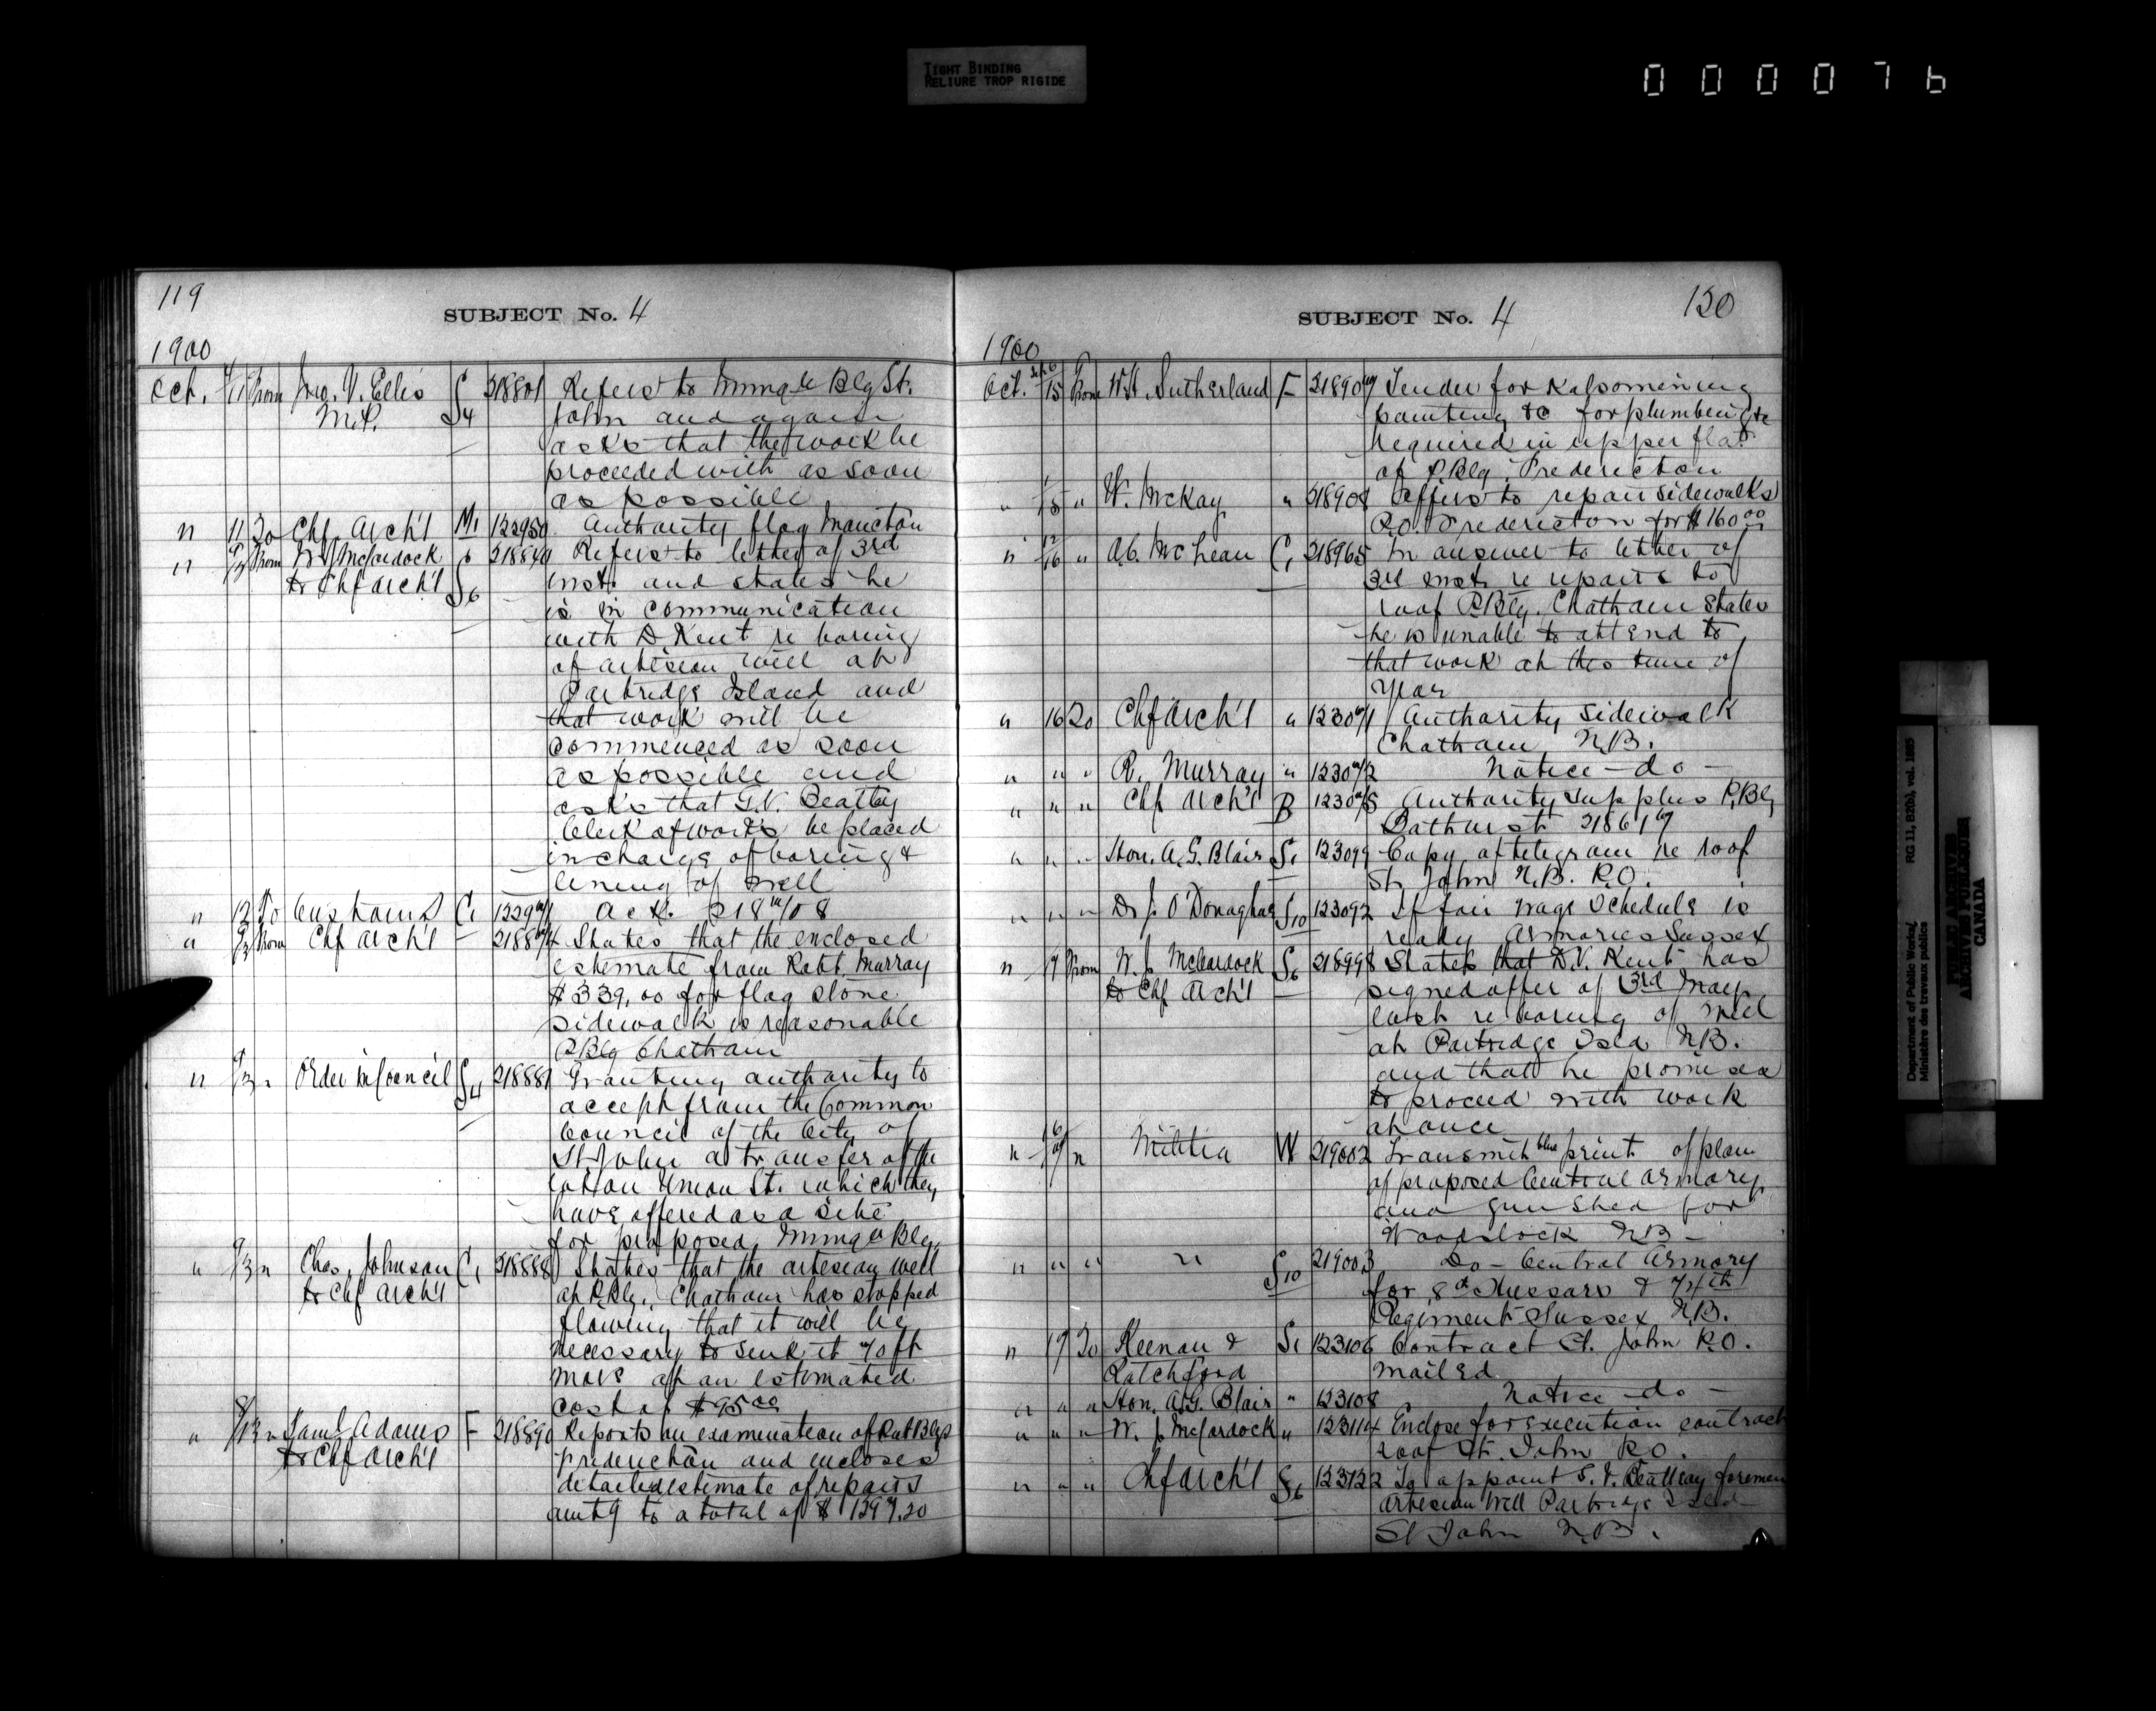 TIGHT BINDING
RELIURE TROP RIGIDE
000076
119
SUBJECT No. 4
1900
Oct. 11 From Jno. V. Ellis S4 218801 Refers to Immgn Blg St.
M.P. John and again
asks that the work be
proceeded with as soon
as possible
" 11 To Chf. Arch't M1 122950 Authority flag Moncton
" From W. J. McCordock 218840 Refers to letter of 3rd
to Chf Arch't S6 inst. and states he
is in communication
with D Kent re boring
of artesian well at
Partridge Island and
that work will be
commenced as soon
as possible and
asks that G.V. Beattey
Clerk of works be placed
in charge of boring &
lining of well
" 12 To Customs C1 Ack.
" From Chf Arch't States that the enclosed
estimate from Robt. Murray
$339.00 for flag stone
sidewalk is reasonable
P.Blg Chatham
" " Order in Council S4 218881 Granting authority to
accept from the Common
Council of the City of
St John a transfer of the
lot on Union St. which they
have offered as a site
for proposed Immgn Blg.
" " Chas. Johnson C1 218888 States that the artesian well
to Chf Arch't at P.Blg. Chatham has stopped
flowing that it will be
necessary to sink it 70 ft
more at an estimated
cost of $95.00
" 13 " Saml Adams F 218890 Reports on examination of Pub Blgs
to Chf Arch't Fredericton and encloses
detailed estimate of repairs
amtg to a total of $1397.20
SUBJECT No. 4
130
1900
Oct. 15 From W.H. Sutherland F 218907 Tender for Kalsomining
painting &c for plumbing &c
required in upper flat
of P.Blg. Fredericton
" " W. McKay " 218908 Offers to repair sidewalks
P.O. Fredericton for $160.00
" 16 " A.C. McLean C1 218965 In answer to letter of
3rd inst. re repairs to
roof P.Blg. Chatham States
he is unable to attend to
that work at this time of
Year
" 16 To Chf Arch't " 123071 Authority sidewalk
Chatham N.B.
" " " R. Murray " 123072 Notice - do -
" " " Chf Arch't B Authority supplies P.Blg
Bathurst 218617
" " " Hon. A.G. Blair S1 123099 Copy of telegram re roof
St. John N.B. P.O.
" " " D. J. O'Donaghue S10 123092 If fair wage schedule is
ready Armories Sussex
" 17 From W. J. McCordock S6 218998 States that D.V. Kent has
to Chf Arch't signed offer of 3rd May
last re boring of well
at Partridge Isld N.B.
and that he promises
to proceed with work
at once
" " Militia W 219002 Transmit blue print of plan
of proposed Central Armory
and gun shed for
Woodstock NB -
" " " " S10 219003 Do - Central Armory
for 8th Hussars & 74th
Regiment Sussex N.B.
" 17 To Keenan & S1 123106 Contract St. John P.O.
Ratchford mailed
" " " Hon. A.G. Blair " 123108 Notice - do -
" " " W. J. McCordock " 123114 Enclose for execution contract
roof St. John P.O.
" " " Chf Arch't S6 123122 To appoint G. V. Beatteay foreman
Artesian Well Partridge Isld
St John N.B.
Department of Public Works/
Ministère des travaux publics
RG 11, B2(b), vol. 1885
PUBLIC ARCHIVES
ARCHIVES PUBLIQUES
CANADA